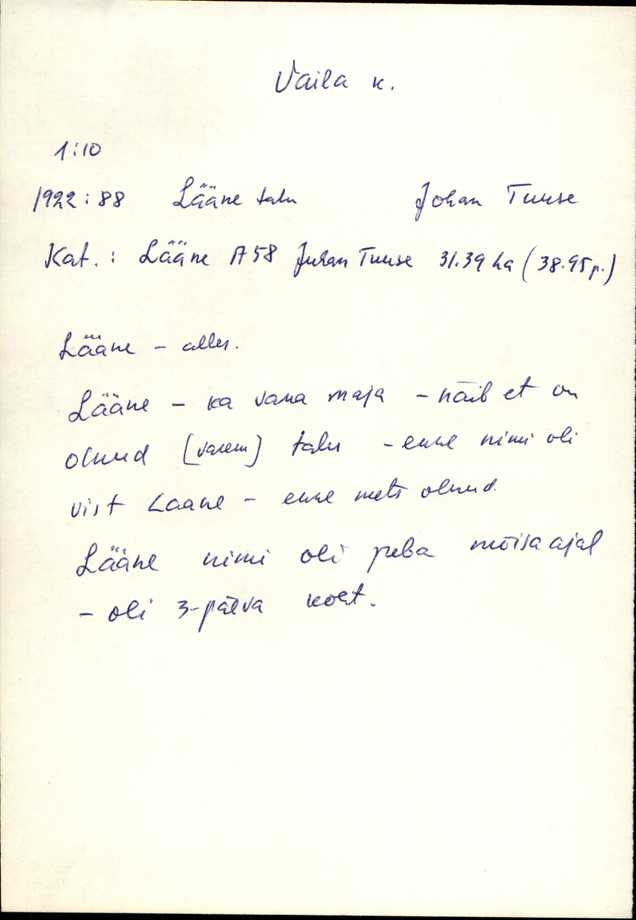 Vaila k.
1:10
1922:88 Lääne talu Johan Tuuse
Kat.: Lääne A58 Juhan Tuuse 31.39 ha (38.95 p.)
Lääne - alles.
Lääne - ka vana maja - näib et on
olnud [varem] talu - enne nimi oli
vist Laane - enne mets olnud.
Lääne nimi oli juba mõisaajal
- oli 3-päeva koht.